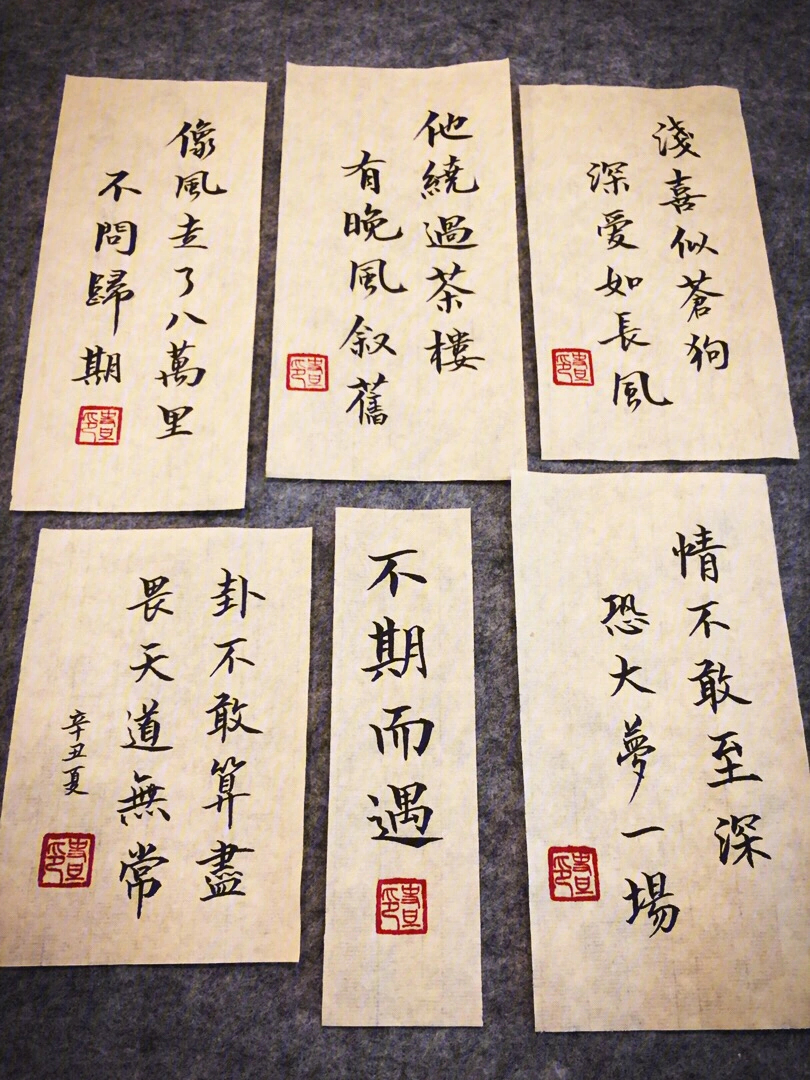 淺喜似蒼狗
深愛如長風
他繞過茶樓
有晚風叙舊
像風走了八萬里
不問歸期
情不敢至深
恐大夢一場
不期而遇
卦不敢算盡
畏天道無常
辛丑夏